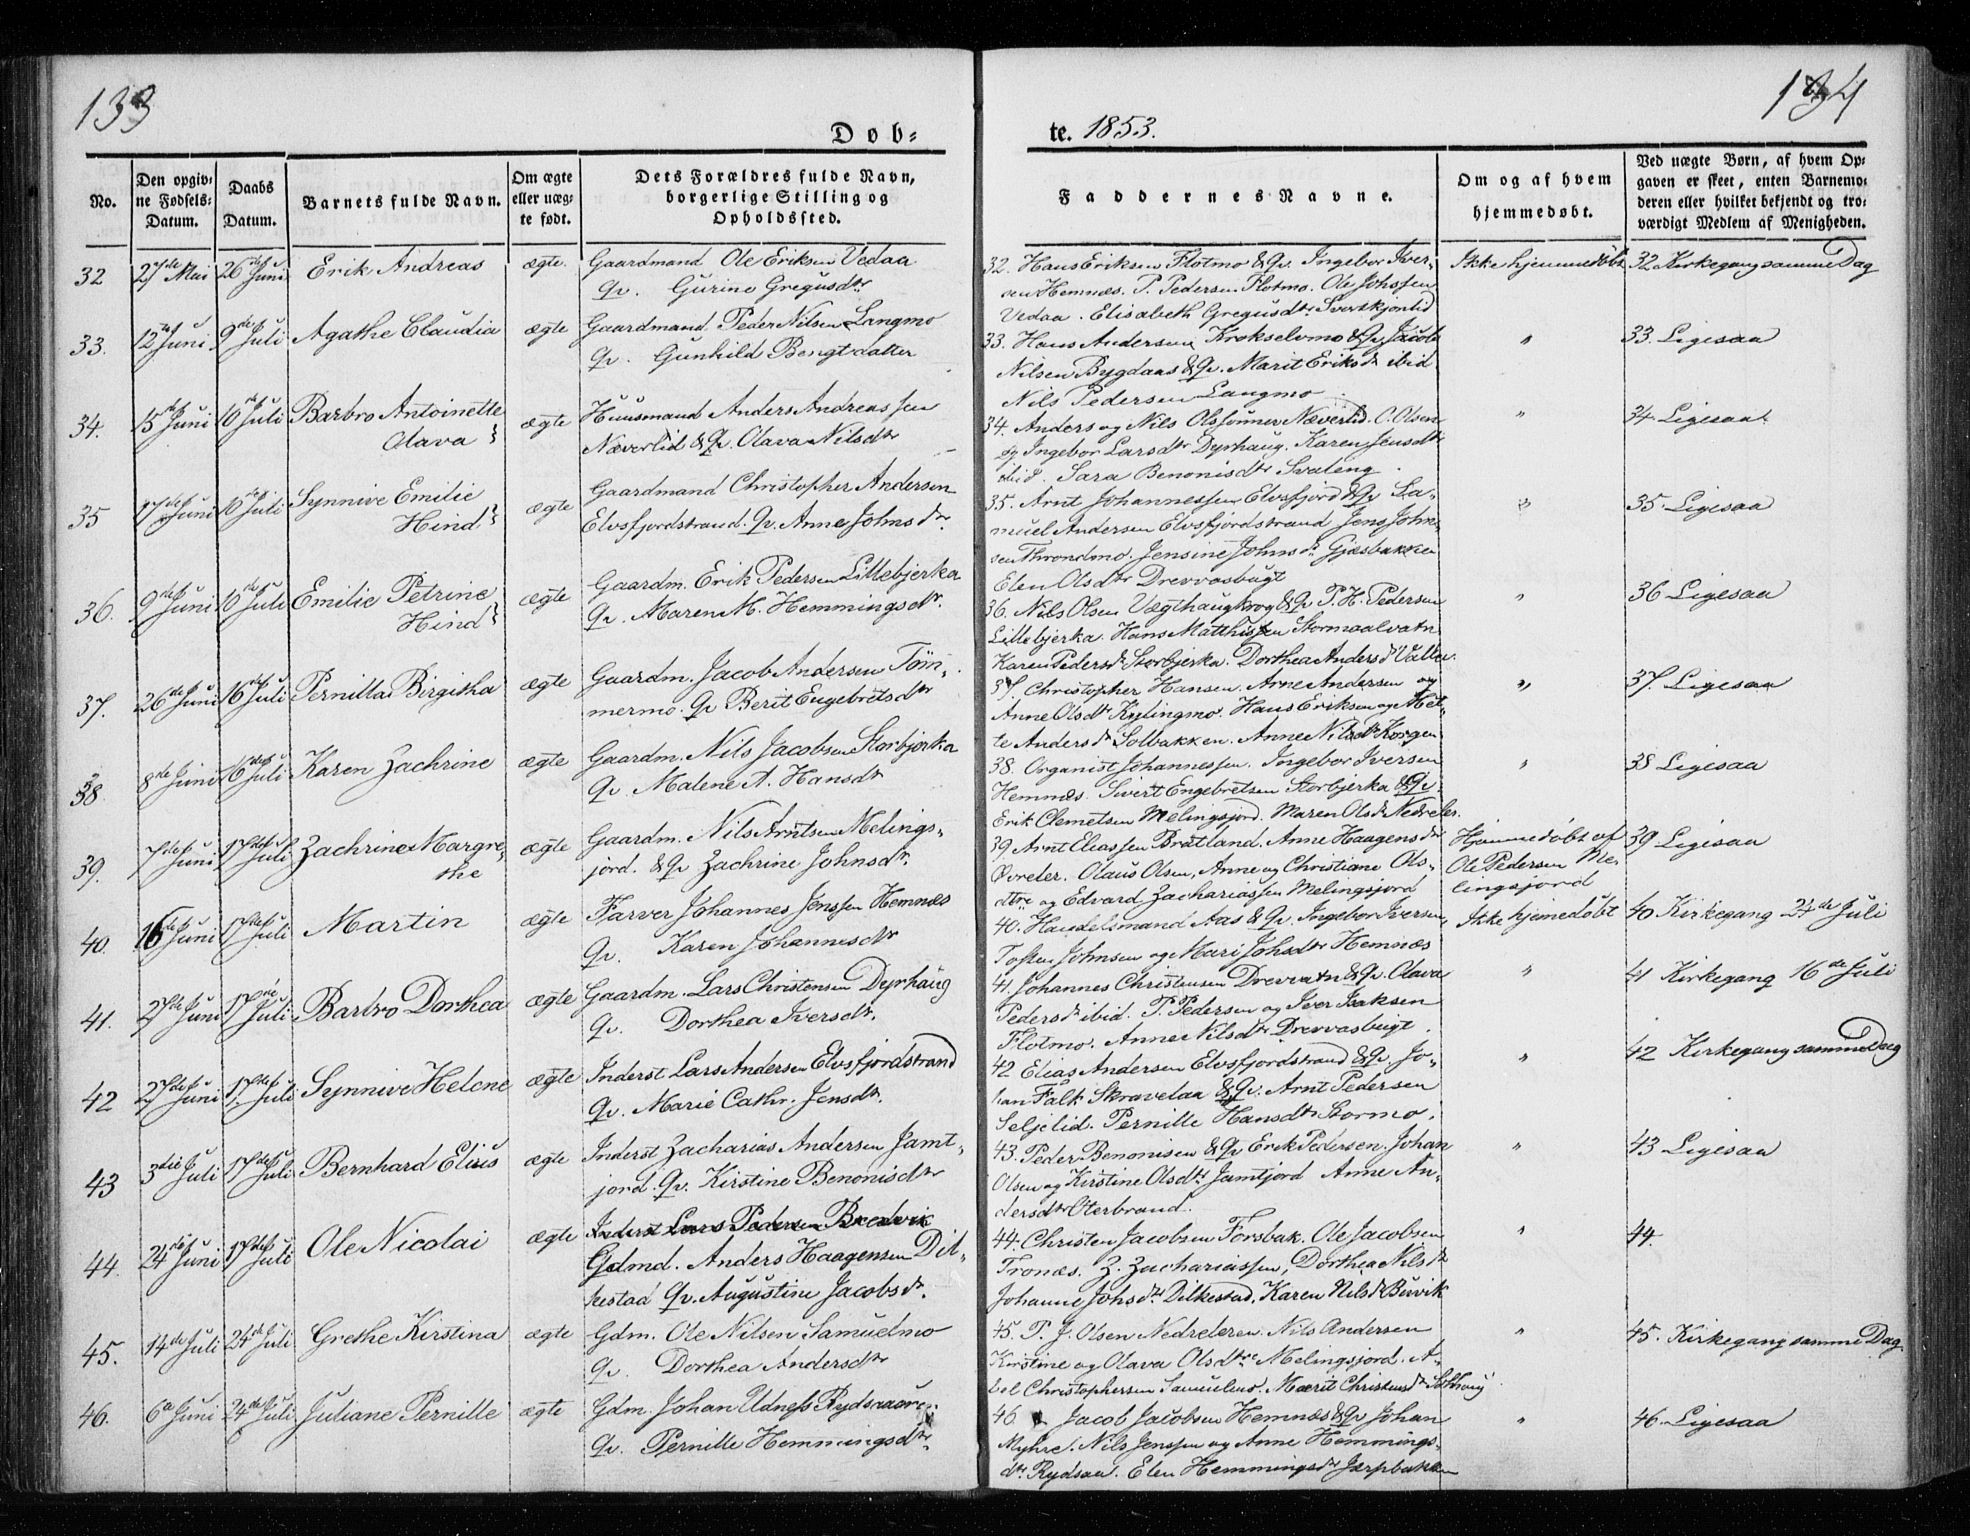 133
134
Døb-
te. 1853.
No.
Den opgiv-
ne Fødsels-
Datum.
Daabs
Datum.
Barnets fulde Navn.
Om ægte
eller uæg-
te født.
Dets Forældres fulde Navn,
borgerlige Stilling og
Opholdssted.
Faddernes Navne.
Om og af hvem
hjemmedøbt.
Ved uægte Børn, af hvem Op-
gaven er skeet, enten Barnemo-
deren eller hvilket bekjendt og tro-
værdigt Medlem af Menigheden.
32 27de Mai 26de Juni Erik Andreas ægte Gaardmand Ole Eriksen Vedaa
Qv. Gurine Gregusdtr
32. Hans Eriksen Flotmo & Qv. Ingebor Iver-
sen Hemnæs. P. Pedersen Flotmo. Ole Johssen
Vedaa. Elisabeth Gregusdtr
Ikke hjemmedøbt 32 Kirkegang samme Dag
33. 12te Juni 9de Juli Agathe Claudia ægte Gaardmand Peder Nilsen Langmo
Qv. Gunhild Bengtdatter
33. Hans Andersen Krokselvmo & Qv. Jacob
Nilsen Bygdaas & Qv. Marit Eriksdr ibid
Nils Pedersen Langmo
" 33. Ligesaa
34. 15de Juni 10de Juli Barbro Antoinette
Olava
ægte Huusmand Anders Andreassen
Næverlid & Qv. Olava Nilsdtr
34. Anders og Nils Olssønner Næverlid. C. Olsen
og Ingebor Larsdtr Dyrhaug. Karen Jensdtr
ibid. Sara Benonisdtr Svaleng.
" 34 Ligesaa
35 7de Juni 10de Juli Synnive Emilie
Hind
ægte Gaardmand Christopher Andersen
Elvsfjordstrand. Qv. Anne Johnsdr.
35. Arnt Johannessen Elvsfjord & Qv. Sa-
muel Andersen Elvsfjordstrand Jens John-
sen Throndmo. Jensine Johnsdr. Gjæsbakken
Elen Olsdtr Drevvasbugt
" 35 Ligesaa
36. 9de Juni 10de Juli Emilie Petrine
Hind
ægte Gaardm. Erik Pedersen Lillebjerka
Qv. Maren M. Hemmingsdtr.
36. Nils Olsen Vægthaugkrog & Qv P. H. Pedersen
Lillebjerka. Hans Matthissen Stormaalvatn
Karen Pedersdr Storbjerka. Dorthea Andersdr Valler.
" 36 Ligesaa
37. 26de Juni 16de Juli Pernilla Birgitha ægte Gaardm. Jacob Andersen Tøm-
mermo. Qv Berit Engebretsdtr
37. Christopher Hansen. Arne Andersen og
Anne Olsdtr Kylingmo. Hans Eriksen og Met-
te Andersdr Solbakken. Anne Nilsdtr Korgen
" 37. Ligesaa
38. 8de Juni 16de Juli Karen Zachrine ægte Gaardm. Nils Jacobsen Storbjerka
Qv. Malene A. Hansdtr
38. Organist Johannessen. Ingebor Iversen
Hemnæs. Sivert Engebretsen Storbjerka & Qv.
Erik Clemetsen Melingsjord. Maren Olsdr Nedreler.
" 38 Ligesaa
39. 7de Juni 17de Juli Zachrine Margre-
the
ægte Gaardm. Nils Arntsen Melings-
jord. & Qv Zachrine Johnsdtr.
39 Arnt Eliassen Bratland. Anne Haagensdtr
Øvreler. Olaus Olsen, Anne og Christiane Ols-
dtre og Edvard Zachariassen Melingsjord
Hjemmedøbt af
Ole Pedersen Me-
lingsjord
39 Ligesaa
40. 16de Juni 17de Juli Martin ægte Farver Johannes Jenssen Hemnæs
Qv. Karen Johannesdtr
40. Handelsmand Aas & Qv. Ingebor Iversen,
Tosten Johnsen og Mari Johsdtr Hemnæs
Ikke hjemedøbt 40 Kirkegang 24de Juli
41. 27de Juni 17de Juli Barbro Dorthea ægte Gaardm. Lars Christensen Dyrhaug
Qv. Dorthea Iversdtr.
41. Johannes Christensen Drevvatn & Qv. Olava
Pedersdr ibid. P. Pedersen og Iver Isaksen
Flotmo. Anne Nilsdtr Drevvasbugt.
" 41 Kirkegang 16de Juli
42 27de Juni 17de Juli Synnive Helene ægte Inderst Lars Andersen Elvsfjordstrand
Qv. Marie Cathr. Jensdtr.
42 Elias Andersen Elvsfjordstrand & Qv. Jo-
han Falk Skravelaa & Qv. Arnt Pedersen
Seljelid. Pernille Hansdtr Stormo.
" 42 Kirkegang samme Dag
43 3die Juli 17de Juli Bernhard Elius ægte Inderst Zacharias Andersen Jamt-
jord. Qv. Kirstine Benonisdtr
43. Peder Benonisen & Qv Erik Pedersen. Johan
Olsen og Kirstine Olsdtr Jamtjord Anne An-
dersdtr Oterbrand.
" 43 Ligesaa
44. 24de Juni 17de Juli Ole Nicolai ægte Inderst Lars Pedersen Bredvik
Gdmd. Anders Haagensen Dil-
kestad Qv. Augustine Jacobsdr.
44. Christen Jacobsen Forsbak. Ole Jacobsen
Tronæs. Z. Zachariassen, Dorthea Nilsdr
Johanne Johsdtr Dilkestad. Karen Nilsdr
" 44.
45. 14de Juli 24de Juli Grethe Kirstina ægte Gdm. Ole Nilsen Samuelmo
Qv. Dorthea Andersdtr
45. P. J. Olsen Nedreleren. Nils Andersen
Kirstine og Olava Olsdtre Melingsjord. A-
bel Christophersen Samuelmo. Marit Christensdr
" 45. Kirkegang samme Dag
46. 6te Juni 24de Juli Juliane Pernille ægte Gdm. Johan Udness Rydsaaøren.
Qv. Pernille Hemmingsdtr.
46. Jacob Jacobsen Hemnæs & Qv Johan
Myhre. Nils Jenssen og Anne Hemmings-
dtr. Rydsaa. Elen Hemmingsdr Jærpbakken
" 46. Ligesaa